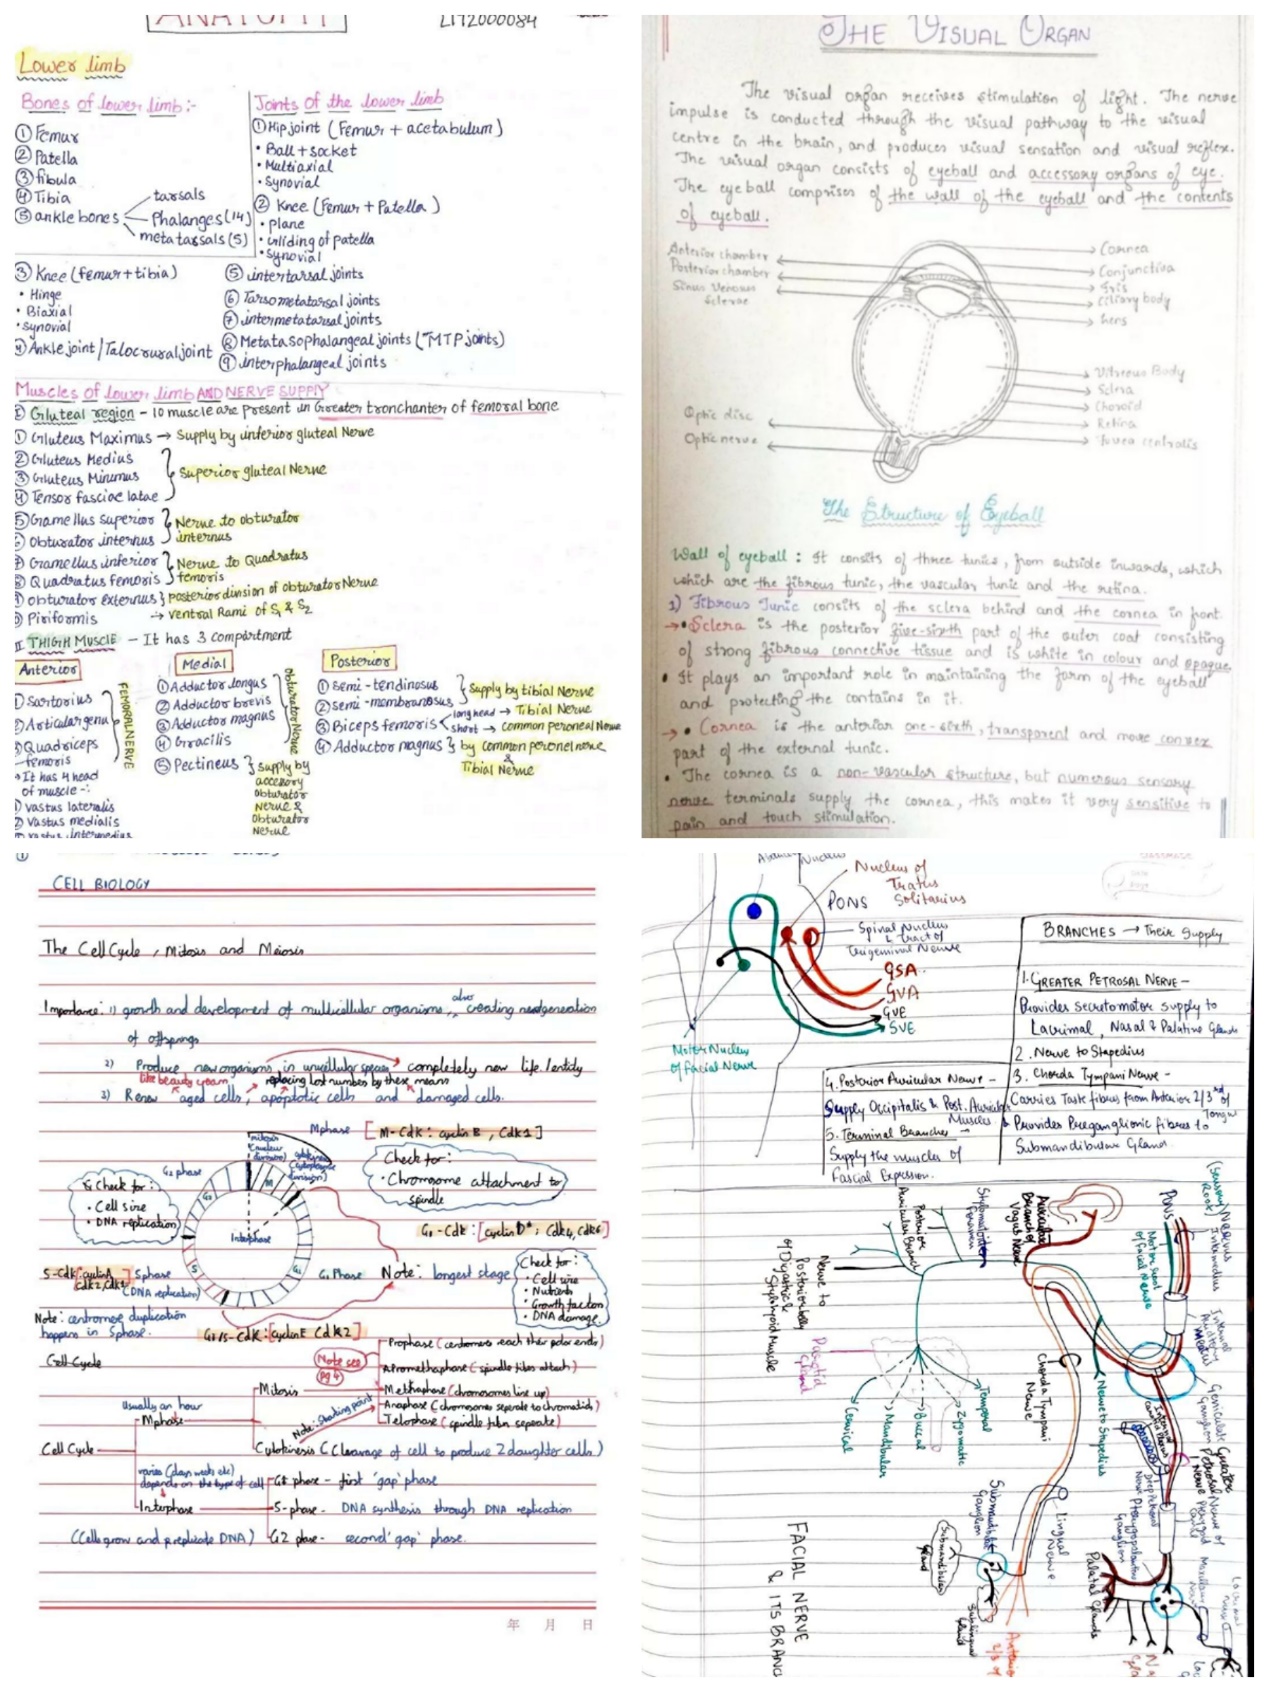 ANATOMY
LIT2000084
Lower limb
Bones of lower limb:-
① Femur
② Patella
③ fibula
④ Tibia
⑤ ankle bones
tarsals
Phalanges (14)
metatassals (5)
Joints of the lower limb
① Hip joint (Femur + acetabulum)
• Ball + socket
• Multiaxial
• Synovial
② Knee (Femur + Patella)
• plane
• Gliding of patella
• Synovial
③ Knee (femur + tibia)
• Hinge
• Biaxial
• Synovial
④ Ankle joint / Talocrural joint
⑤ intertarsal joints
⑥ Tarsometatarsal joints
⑦ intermetatarsal joints
⑧ Metatasophalangeal joints (MTP joints)
⑨ interphalangeal joints
Muscles of lower limb AND NERVE SUPPLY
Gluteal region - 10 muscle are present in Greater tronchanter of femoral bone
① Gluteus Maximus → Supply by inferior gluteal Nerve
② Gluteus Medius
③ Gluteus Minumus
④ Tensor fasciae latae
Superior gluteal Nerve
⑤ Gramellus superior
⑥ Obturator internus
Nerve to obturator
internus
⑦ Gramellus inferior
⑧ Quadratus femoris
Nerve to Quadratus
femoris
⑨ obturator externus } posterior dinsion of obturator Nerve
Piriformis → ventral Rami of S1 & S2
II THIGH MUSCLE - It has 3 compartment
Anterior
① Sartorius
② Articular genu
③ Quadriceps
femoris
• It has 4 head
of muscle -:
① vastus lateralis
② vastus medialis
vastus intermedius
FEMORAL NERVE
Medial
① Adductor longus
② Adductor brevis
③ Adductor magnus
④ Gracilis
⑤ Pectineus } supply by
accesory
obturator
Nerve &
Obturator
Nerve
Obturator Nerve
Posterior
① semi-tendinosus
② semi-membranosus
supply by tibial Nerve
③ Biceps femoris
long head → Tibial Nerve
short → common peroneal Nerve
④ Adductor magnus } by common peronel nerve
&
Tibial Nerve
THE VISUAL ORGAN
The visual organ receives stimulation of light. The nerve
impulse is conducted through the visual pathway to the visual
centre in the brain, and produces visual sensation and visual reflex.
The visual organ consists of eyeball and accessory organs of eye.
The eyeball comprises of the wall of the eyeball and the contents
of eyeball.
Anterior chamber
Posterior chamber
Sinus Venosus
Sclerae
Optic disc
Optic nerve
Cornea
Conjunctiva
Iris
Ciliary body
Lens
Vitreous Body
Sclera
Choroid
Retina
Fovea centralis
The Structure of Eyeball
Wall of eyeball : It consits of three tunics, from outside inwards, which
which are the fibrous tunic, the vascular tunic and the retina.
1) Fibrous Tunic consits of the sclera behind and the cornea in front.
→ • Sclera is the posterior five-sixth part of the outer coat consisting
of strong fibrous connective tissue and is white in colour and opaque.
• It plays an important role in maintaining the form of the eyeball
and protecting the contains in it.
→ • Cornea is the anterior one-sixth, transparent and more convex
part of the external tunic.
• The cornea is a non-vascular structure, but numerous sensory
nerve terminals supply the cornea, this makes it very sensitive to
pain and touch stimulation.
CELL BIOLOGY
The Cell Cycle, Mitosis and Meiosis
Importance: 1) growth and development of multicellular organisms, also creating newgeneration
of offsprings
2) Produce new organisms in unicellular species → completely new life/entity
like beauty cream
replacing lost number by these means
3) Renew aged cells, apoptotic cells and damaged cells.
M phase [M-Cdk: cyclin B, Cdk1]
mitosis
(nuclear
division)
cytokinesis
(cytoplasmic
division)
Check for:
• Chromosome attachment to
spindle
G2 phase
G2 Check for:
• Cell size
• DNA replication
G2
M
S
G1
Interphase
G1-Cdk: [cyclin D*; Cdk4, Cdk6]
S-Cdk: cyclin A
S phase
(DNA replication)
G1 Phase
Note: longest stage
Check for:
• Cell size
• Nutrients
• Growth factors
• DNA damage
Note: centromere duplication
happens in S phase.
G1/S-Cdk: [cyclin E Cdk2]
Cell Cycle
Note see
pg 4
Prophase (centromers each other polar ends)
Apromethaphase (spindle fibes attach)
Methaphase (chromosomes line up)
Anaphase (chromosomes seperate to chromatids)
Telophase (spindle fibes seperate)
Mitosis
Note: Starting point
usually an hour
M phase
Cytokinesis (Cleavage of cell to produce 2 daughter cells.)
Cell Cycle
varies (days weeks etc)
depends on the type of cell
Interphase
(Cell grow and replicate DNA)
G1 phase - first 'gap' phase
S-phase - DNA synthesis through DNA replication
G2 phase - second 'gap' phase.
年 月 日
Nucleus
Nucleus of
Tratus
Solitarius
PONS
Spinal Nucleus
& tract of
Trigeminal Nerve
GSA
GVA
GVE
SVE
Motor Nucleus
of Facial Nerve
BRANCHES → Their Supply
1. GREATER PETROSAL NERVE -
Provides secretomotor supply to
Lacrimal, Nasal & Palatine Glands
2. Nerve to Stapedius
3. Chorda Tympani Nerve -
Carries Taste fibres from Anterior 2/3rd of
Tongue
& Provides Preganglionic fibres to
Submandibular Glands
4. Posterior Auricular Nerve -
Supply Occipitalis & Post. Auricular
Muscles
5. Terminal Branches -
Supply the muscles of
Fascial Expression.
(Sensory Root) Nervus Intermedius
PONS
Motor root
of facial Nerve
Internal
Auditory
Meatus
Geniculate
Ganglion
Greater
Petrosal Nerve
Deep Petrosal
Nerve
Nerve of
Pterygoid
Canal
Pterygopalatine
Ganglion
Palatal Glands
Auricular
Branch of
Vagus Nerve
Stylomastoid
Foramen
Posterior
Auricular Branch
Nerve to
Posterior belly
of Digastric &
Stylohyoid Muscle
Parotid
Gland
Temporal
Zygomatic
Buccal
Mandibular
Cervical
Nerve to Stapedius
Chorda Tympani
Nerve
Lingual
Nerve
Submandibular
Ganglion
Submandibular
Gland
Sublingual
Gland
FACIAL NERVE
& ITS BRANC